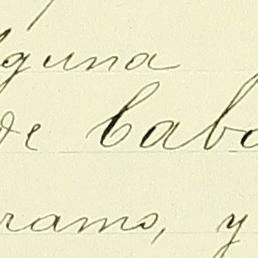 lguna
de Cabo
ramo, y